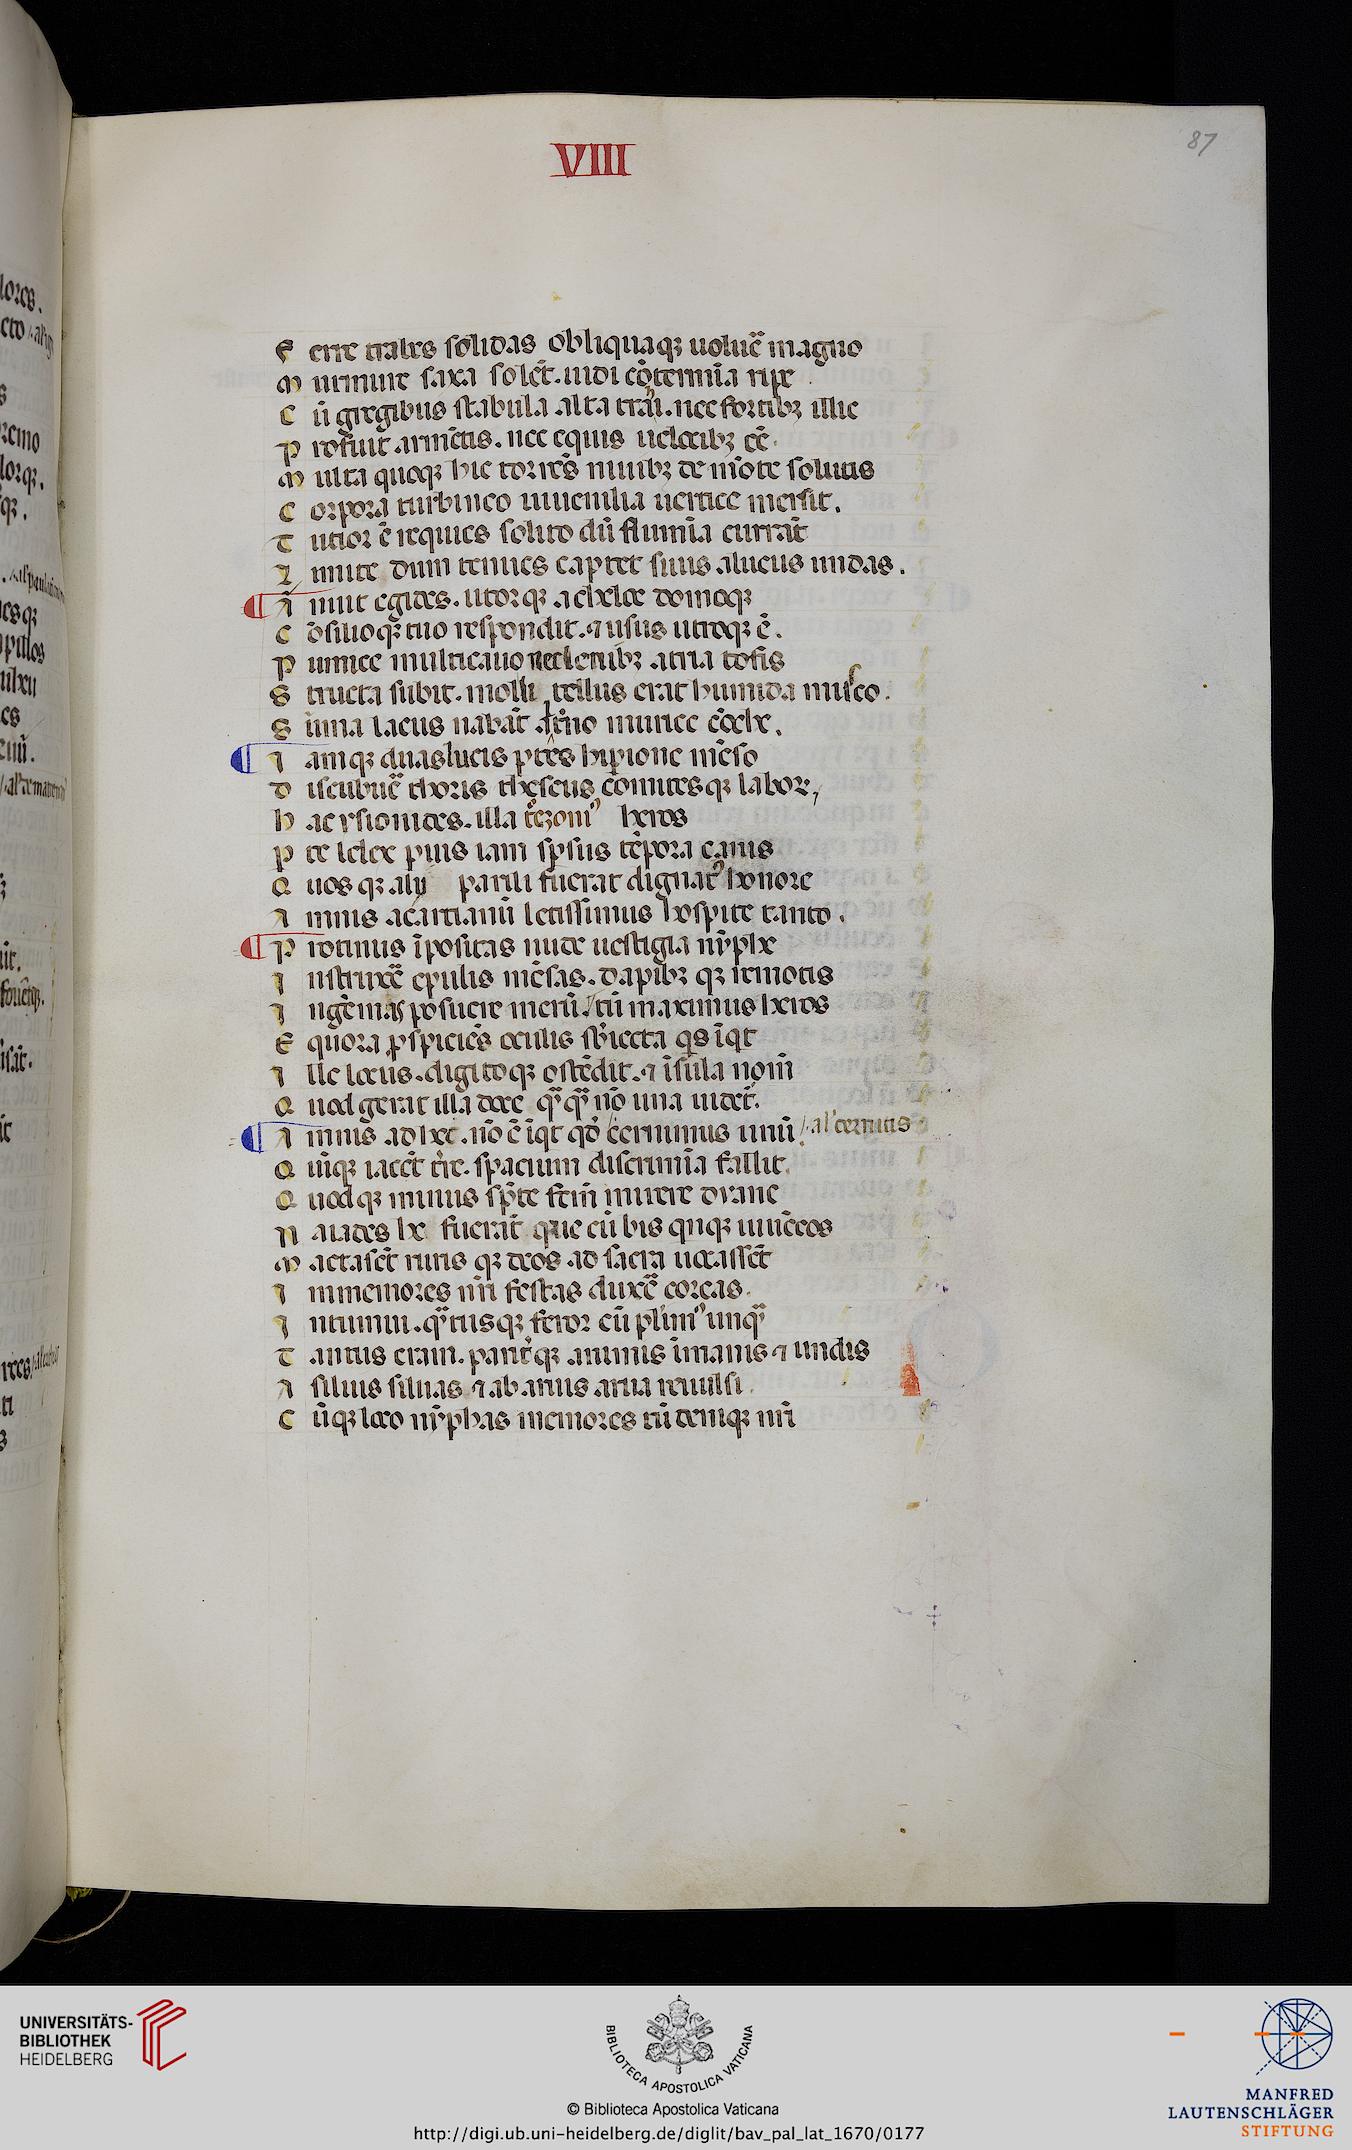 VIII
87
F erre trabes solidas obliquaq; uoluẽ magno
M urmure saxa solẽt. uidi cõtermĩa ripe
C ũ gregibus stabula alta trahi. nec fortib; illic
P rofuit armẽtis. nec equis uelocib; eẽ.
M ulta quoq; hic torrẽs niuib; de mõte solutis
C orpora turbineo iuuenilia uertice mersit.
T utior ẽ requies solito dũ flumĩa currãt
L imite dum tenues captet suus alueus undas.
A nnuit egides. utorq; acheloe domoq;
C õsilioq; tuo respondit. ⁊ usus utroq; ẽ.
P umice multicauo nec leuib; atria tofis
S tructa subit. molli tellus erat humida musco.
S ũma lacus nabãt alt̾no murice cõche.
I amq; duas lucis ptẽs hiperione mẽso
D iscubuẽ thoris theseus comitesq; labor,
H ac ysionides. illa trezoni⁹ heros
P te lelex puis iam spsus tẽpora canis
Q uos q; alij parili fuerat dignat⁹ honore
A mnis acarnanũ letissimus hospite tanto.
P rotinus ĩpositas nude uestigia nỹphe
I nstruxẽ epulis mẽsas. dapib; q; remotis
I n gẽma posuere merũ. tũ maximus heros
E quora pspiciẽs oculis sbiecta qs ĩqt
I lle locus. digitoq; ostẽdit. ⁊ ĩsula nom̃
Q uod gerat illa doce. qq nõ una uidet̃.
A mnis ad hec. nõ ẽ ĩqt qd cernimus unũ / al' cernitis
Q uĩq; iacẽt tr̃e. spacium discrimĩa fallit.
Q uodq; minus sp̃te fc̃m mirere dyane
N aiades he fuerãt que cũ bis quiq; iuuẽcos
M actasẽt ruris q; deos ad sacra uocassẽt
I nmemores nr̃i festas duxẽ coreas.
I ntumui. qtusq; feror cũ plim⁹ unq
T antus eram. parit̾q; animis ĩmanis ⁊ undis
A siluis siluas. ⁊ ab aruis arua reuulsi.
C ũq; loco nỹphas memores tũ deniq; nr̃i
UNIVERSITÄTS-
BIBLIOTHEK
HEIDELBERG
BIBLIOTECA APOSTOLICA VATICANA
© Biblioteca Apostolica Vaticana
http://digi.ub.uni-heidelberg.de/diglit/bav_pal_lat_1670/0177
MANFRED
LAUTENSCHLÄGER
STIFTUNG